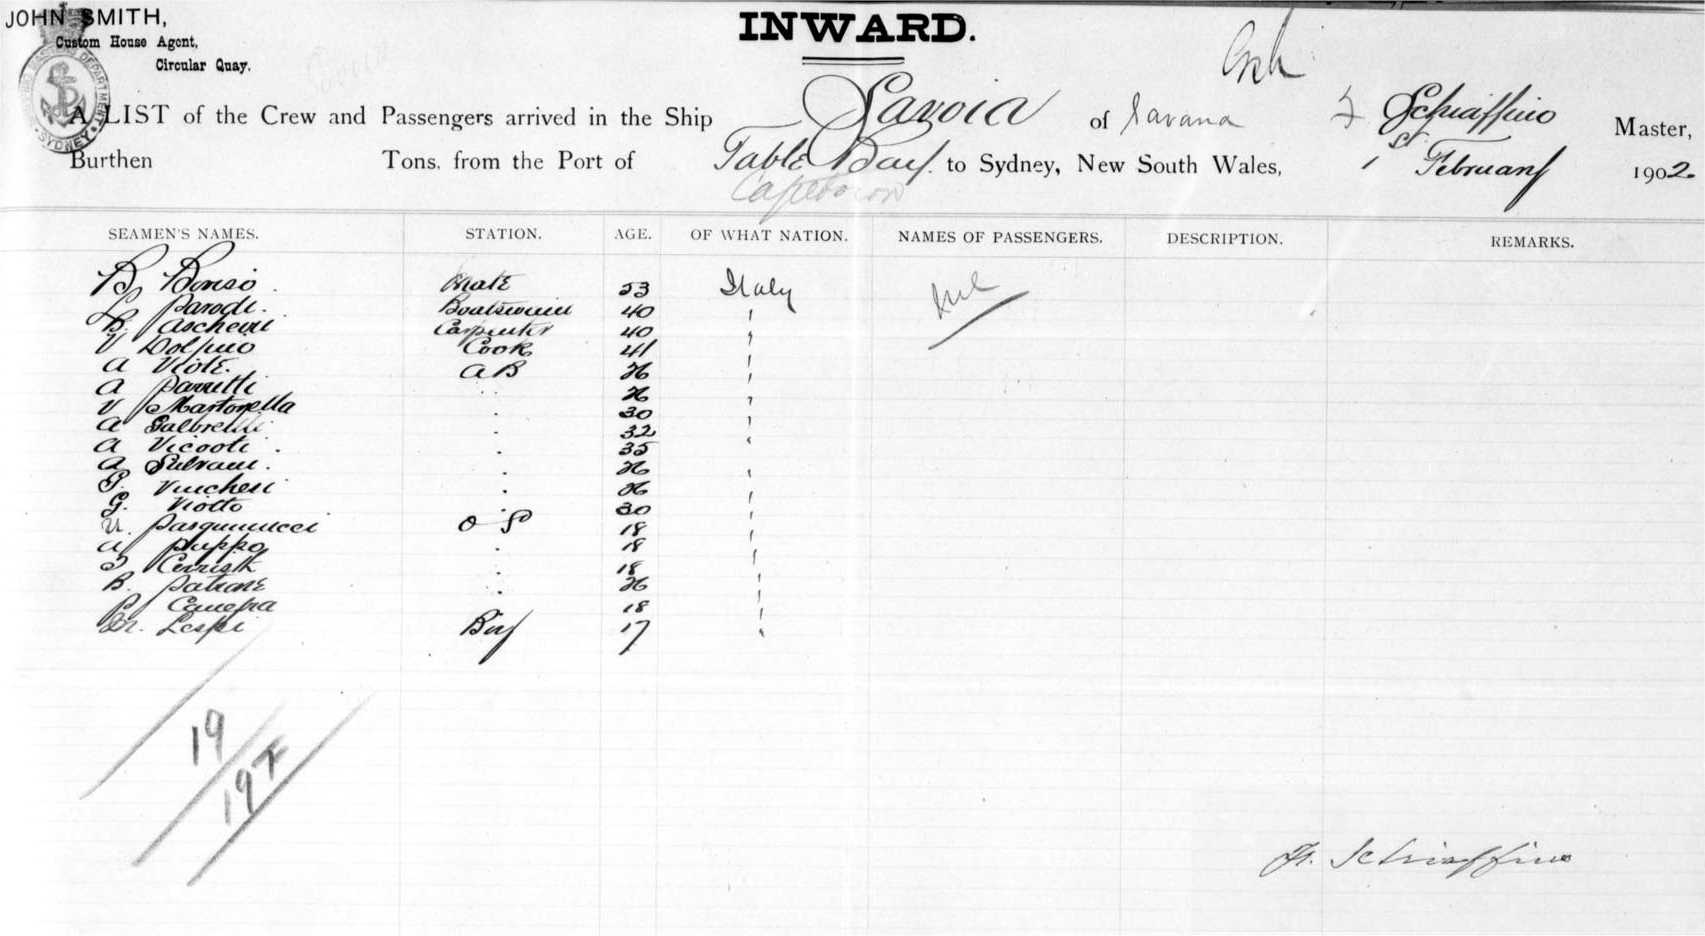 JOHN SMITH,
Custom House Agent,
Circular Quay.
INWARD.
A LIST of the Crew and Passengers arrived in the Ship Savoia of Savana F Schiaffino Master,
Burthen Tons. from the Port of Table Bay. to Sydney, New South Wales, 1st February 1902.
Capetown
SYDNEY
SEAMEN'S NAMES. STATION. AGE. OF WHAT NATION. NAMES OF PASSENGERS. DESCRIPTION. REMARKS.
B Mate 53 Italy Nil
L Parodi. Boatswain 40 "
B. Carpenter 40 "
V Cook 41 "
A Viole. AB 26 "
A Parretti " 26 "
V Martorella " 30 "
A " 32 "
A Vicooti. " 35 "
A Silvani. " 26 "
G. Vincheri " 26 "
G. Viotto " 30 "
U. Pasquinucci O S 18 "
A Puppo " 18 "
" 18 "
B. Patrone " 26 "
P Canepa " 18 "
Lespi Boy 17 "
19
19 F
Fr. Schiaffino